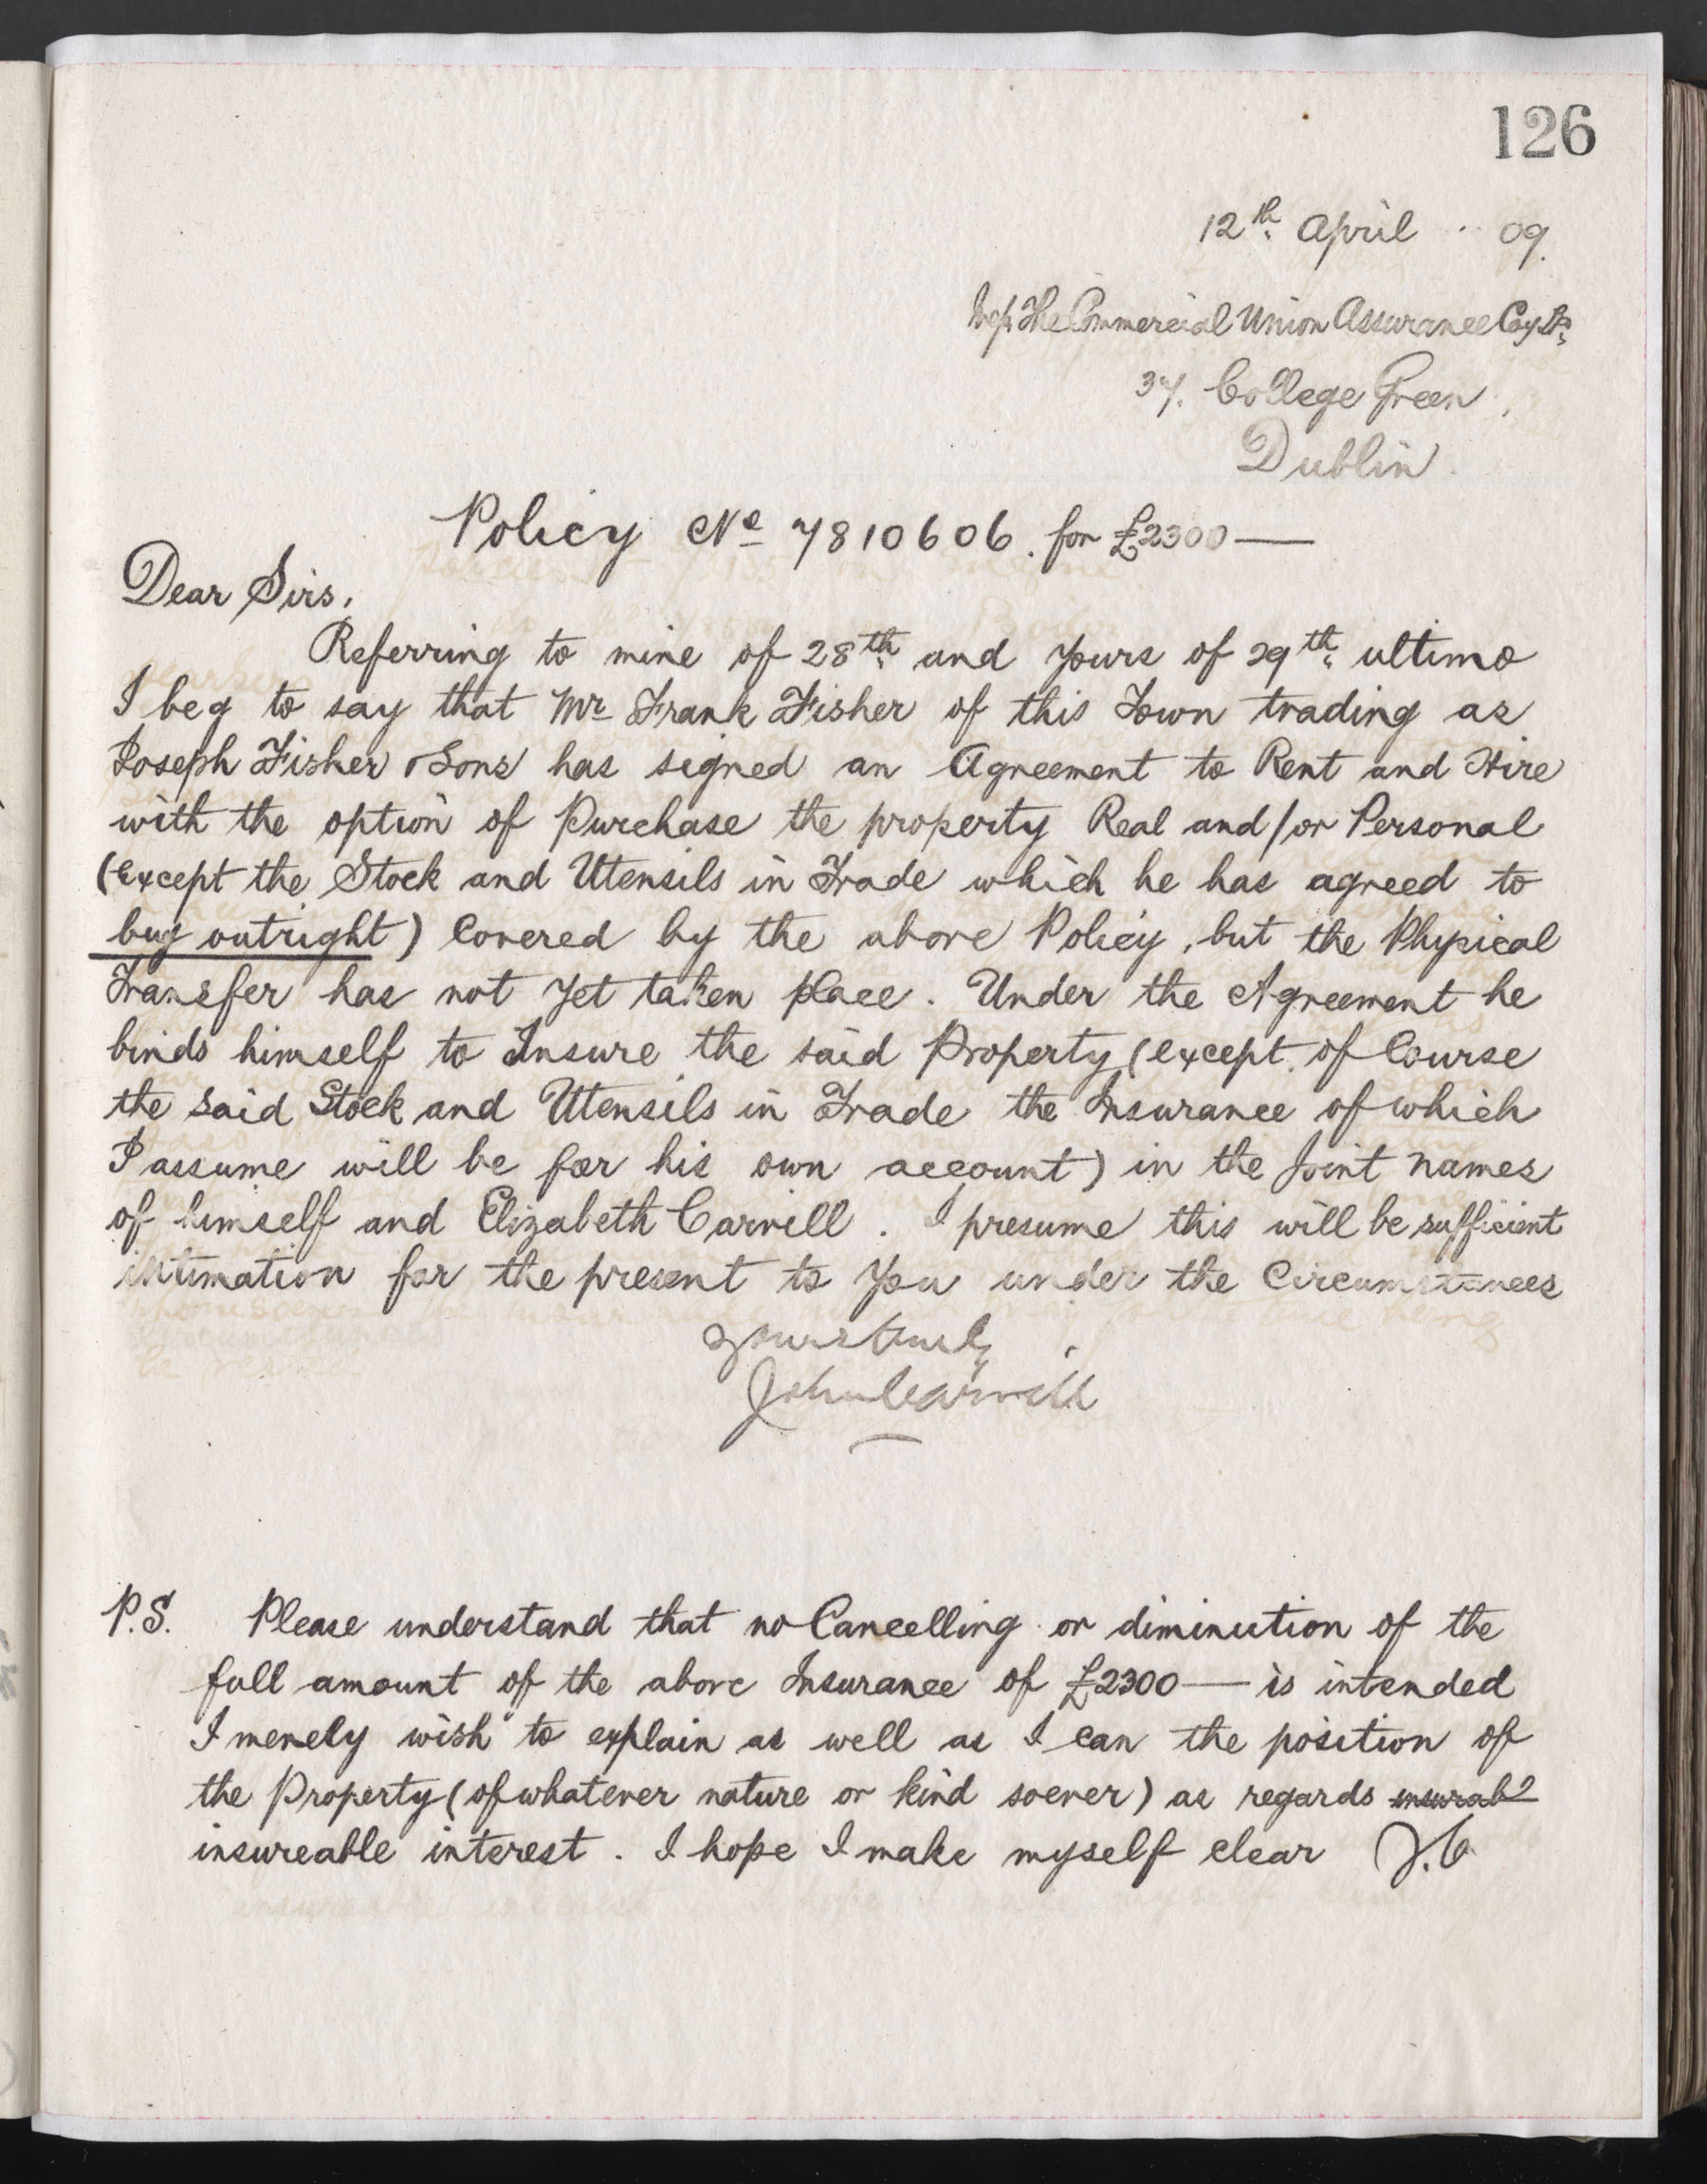 126
12th April 09.
The Commercial Union Assurance Coy Ld
37. College Green,
Dublin.
Policy No 7810606. for £2300—
Dear Sirs,
Referring to mine of 28th and yours of 29th ultimo
I beg to say that Mr Frank Fisher of this Town trading as
Joseph Fisher & Sons has signed an Agreement to Rent and Hire
with the option of Purchase the property Real and/or Personal
(except the Stock and Utensils in Trade which he has agreed to
buy outright) Covered by the above Policy, but the Physical
Transfer has not yet taken place. Under the Agreement he
binds himself to Insure the said Property (except of Course
the said Stock and Utensils in Trade the Insurance of which
I assume will be for his own account) in the Joint names
of himself and Elizabeth Carvill. I presume this will be sufficient
intimation for the present to You under the Circumstances
Yours truly
John Carvill
P.S. Please understand that no Cancelling or diminution of the
full amount of the above Insurance of £2300— is intended
I merely wish to explain as well as I can the position of
the Property (of whatever nature or kind soever) as regards insurab
insureable interest. I hope I make myself clear J.C